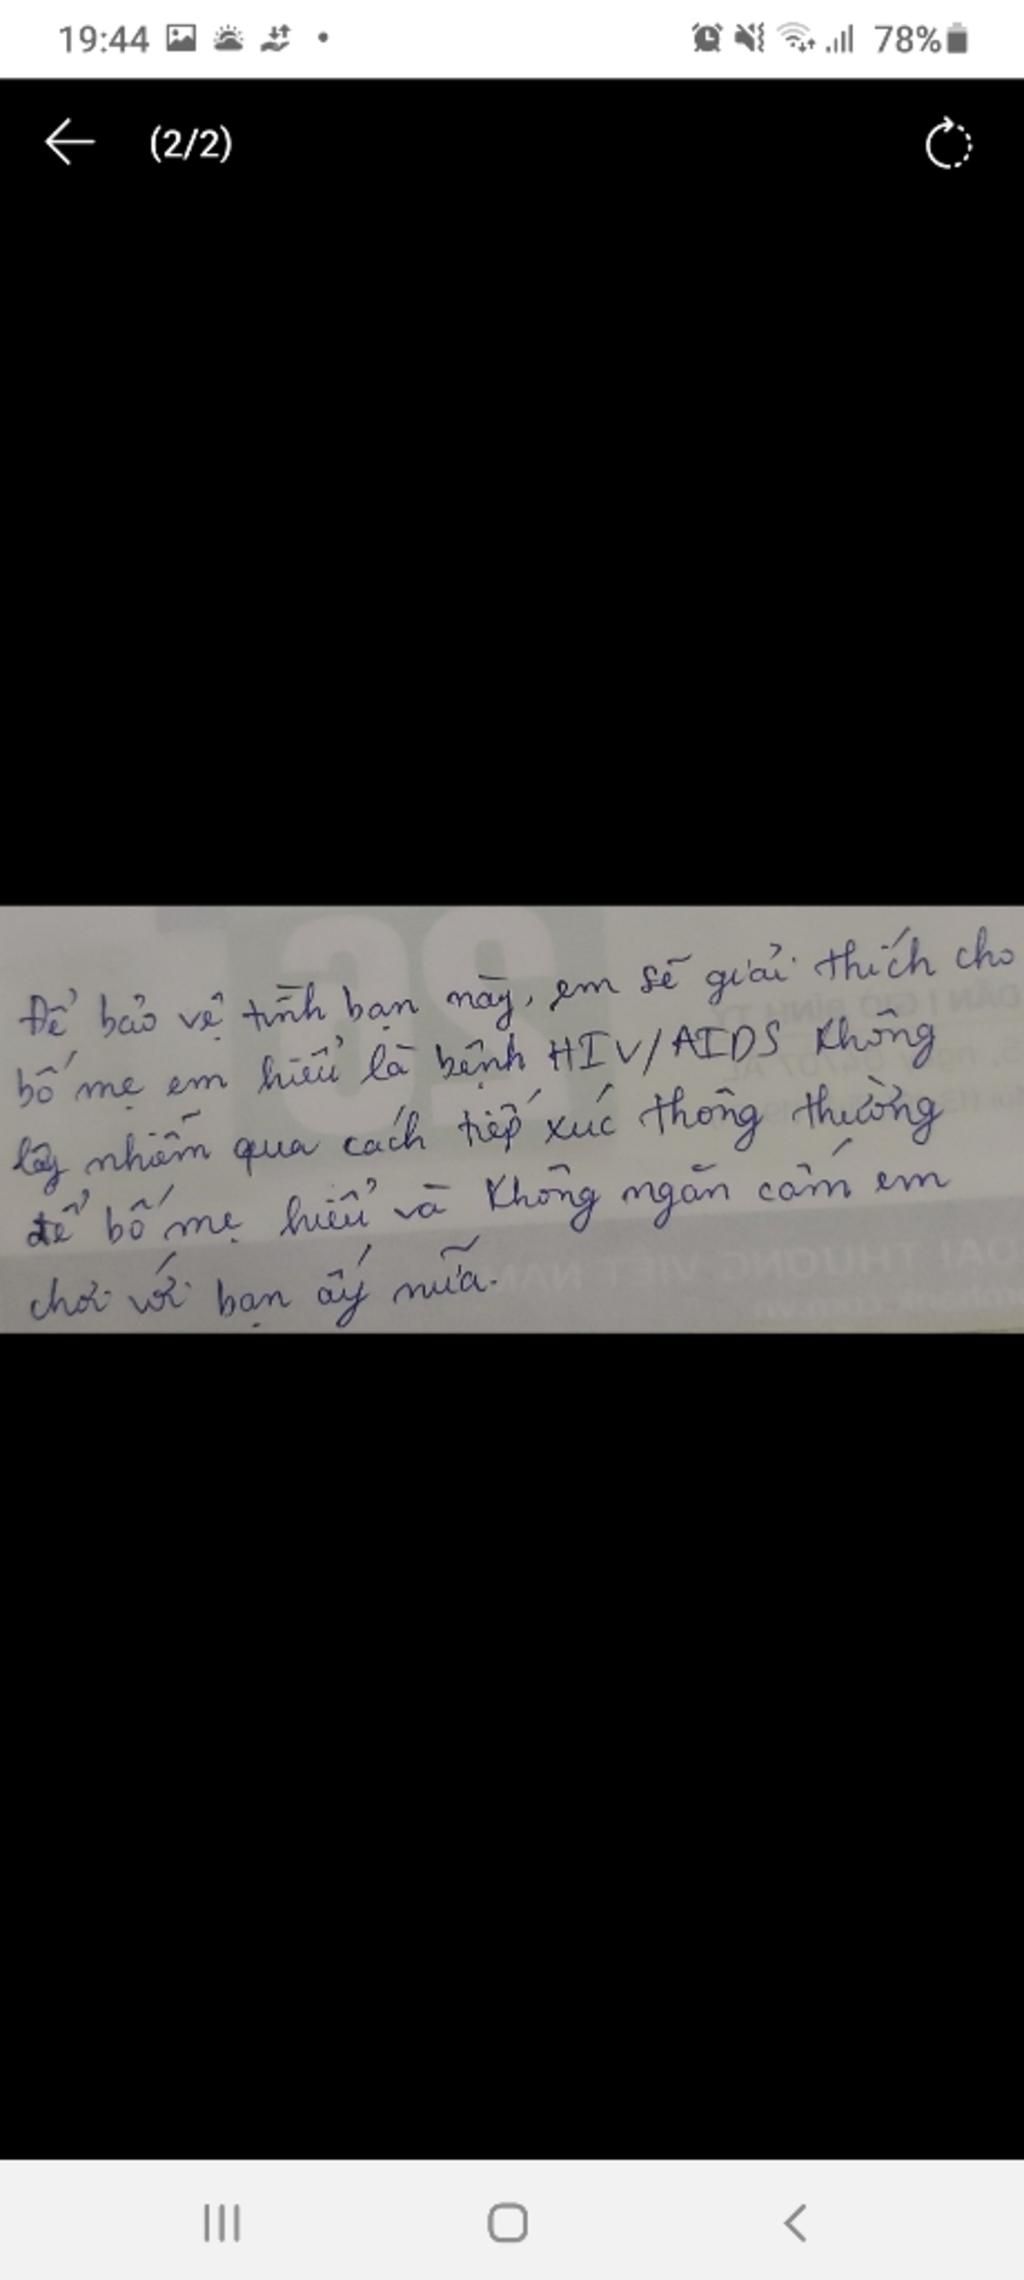 19:44
78%
(2/2)
Để bảo vệ tình bạn này, em sẽ giải thích cho
bố mẹ em hiểu là bệnh HIV/AIDS không
lây nhiễm qua cách tiếp xúc thông thường
để bố mẹ hiểu và không ngăn cấm em
chơi với bạn ấy nữa.